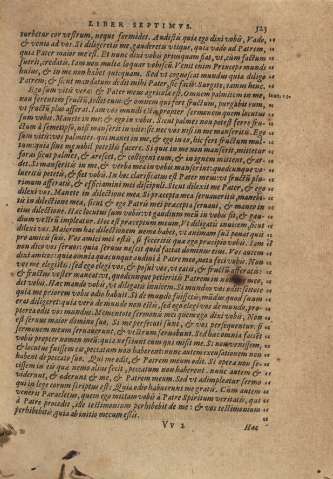 LIBER SEPTIMVS. 523
turbetur cor vestrum, neque formidet. Audistis quia ego dixi vobis, Vado,
& venio ad vos. Si diligeretis me, gauderetis utique, quia vado ad Patrem,
quia Pater maior me est. Et nunc dixi vobis priusquam fiat, ut, cùm factum
fuerit, credatis. Iam non multa loquar vobiscum. Venit enim Princeps mundi
huius, & in me non habet quicquam. Sed ut cognoscat mundus quia diligo
Patrem, & sicut mandatum dedit mihi Pater, sic facio. Surgite, eamus hinc.
Ego sum vitis vera: & Pater meus agricola est. Omnem palmitem in me,
non ferentem fructū, tollet eum: & omnem qui fert fructum, purgabit eum,
ut fructū plus afferat. Iam vos mundi estis propter sermonem quem locutus
sum vobis. Manete in me: & ego in vobis. Sicut palmes non potest ferre fru-
ctum à semetipso, nisi manserit in vite: sic nec vos nisi in me manseritis. Ego
sum vitis, vos palmites. qui manet in me, & ego in eo, hic fert fructum mul-
tum: quia sine me nihil potestis facere. Si quis in me non manserit, mittetur
foras sicut palmes, & arescet, & colligent eum, & in ignem mittent, & ar-
det. Si manseritis in me, & verba mea in vobis manserint: quodcunque vo-
lueritis petetis, & fiet vobis. In hoc clarificatus est Pater meus: ut fructū plu-
rimum afferatis, & efficiamini mei discipuli. Sicut dilexit me Pater, & ego
dilexi vos. Manete in dilectione mea. Si præcepta mea servaveritis, manebi-
tis in dilectione mea, sicut & ego Patris mei præcepta servavi, & maneo in
eius dilectione. Hæc locutus sum vobis: ut gaudium meū in vobis sit, & gau-
dium vestrū impleatur. Hoc est præceptum meum, Ut diligatis invicem sicut
dilexi vos. Maiorem hac dilectionem nemo habet, ut animam suā ponat quis
pro amicis suis. Vos amici mei estis, si feceritis quæ ego præcipio vobis. Iam
non dico vos servos: quia servus nescit quid faciat dominus eius. Vos autem
dixi amicos: quia omnia quæcunque audivi à Patre meo, nota feci vobis. Non
vos me elegistis: sed ego elegi vos, & posui vos, ut eatis, & fructū afferatis:
& fructus vester maneat: ut, quodcunque petieritis Patrem in nomine
det vobis. Hæc mando vobis, ut diligatis invicem. Si mundus vos odit: scitote
quia me priorem vobis odio habuit. Si de mundo fuissetis: mūdus quod suum
erat diligeret: quia verò de mundo non estis, sed ego elegi vos de mundo, pro-
pterea odit vos mundus. Mementote sermonis mei quem ego dixi vobis. Non
est servus maior domino suo. Si me persecuti sunt, & vos persequentur: si
sermonem meum servaverunt, & vestrum servabunt. Sed hæc omnia facient
vobis propter nomen meū: quia nesciunt eum qui misit me. Si non venissem,
& locutus fuissem eis, peccatum non haberent: nunc autem excusationem non
habent de peccato suo. Qui me odit, & Patrem meum odit. Si opera non fe-
cissem in eis quæ nemo alius fecit, peccatum non haberent. nunc autem &
viderunt, & oderunt & me, & Patrem meum. Sed ut adimpleatur sermo
qui in lege eorum scriptus est: Quia odio habuerunt me gratis. Cùm autem
venerit Paracletus, quem ego mittam vobis à Patre Spiritum veritatis, qui
à Patre procedit, ille testimonium perhibebit de me: & vos testimonium
perhibebitis: quia ab initio mecum estis.
Vv 2 Hæc